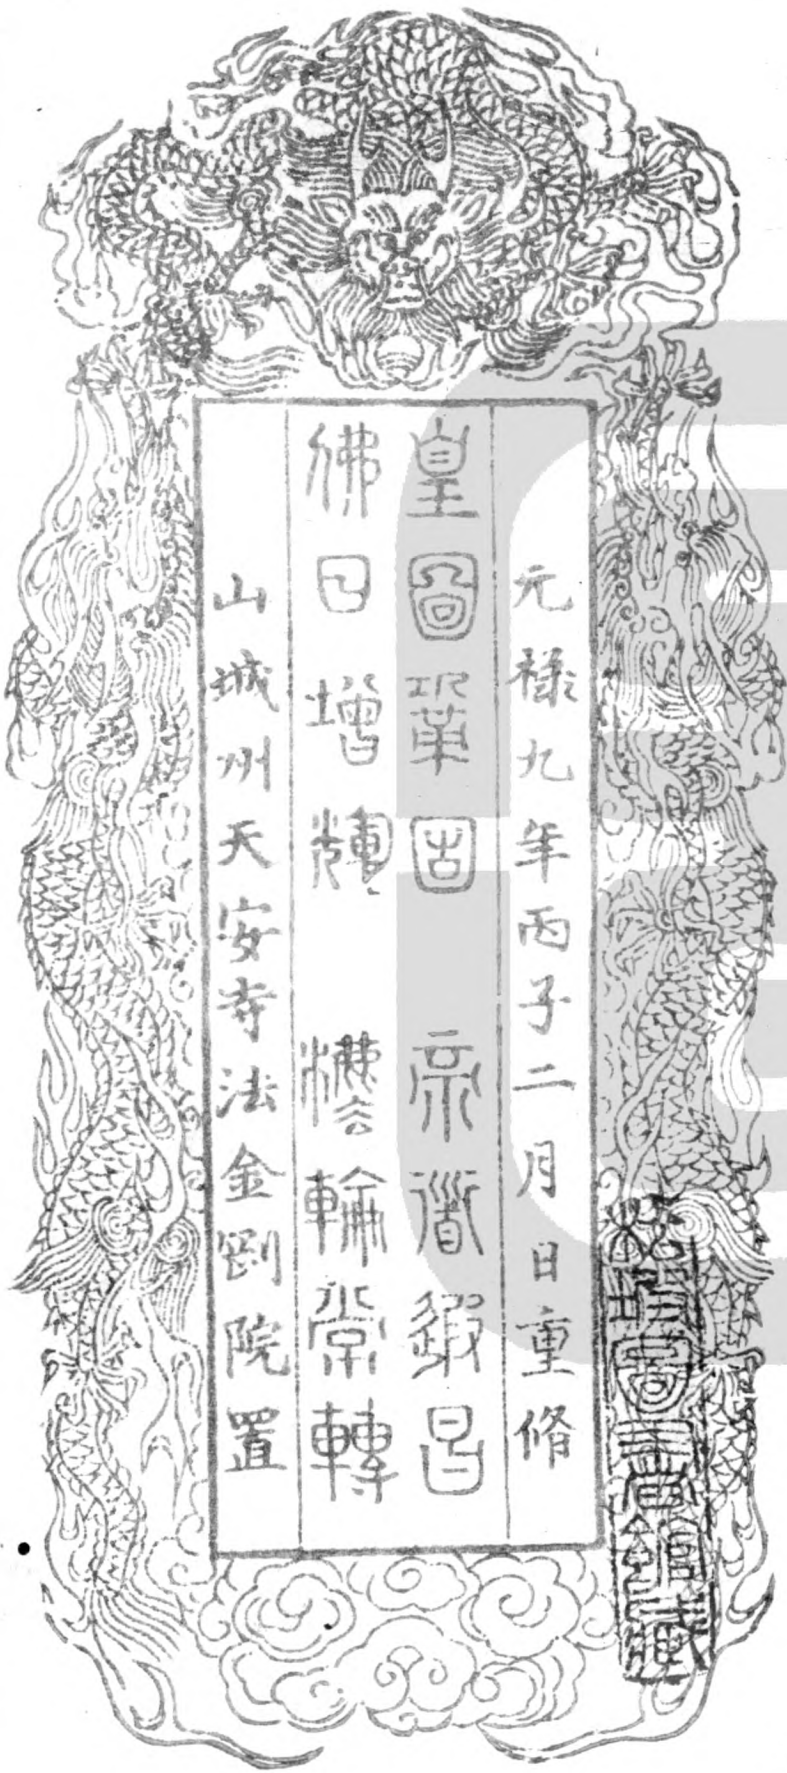 元禄九年丙子二月 日重脩
皇圖鞏固 帝道遐昌
佛日增輝 灋輪常轉
山城州天安寺法金剛院置
松坡圖書館藏